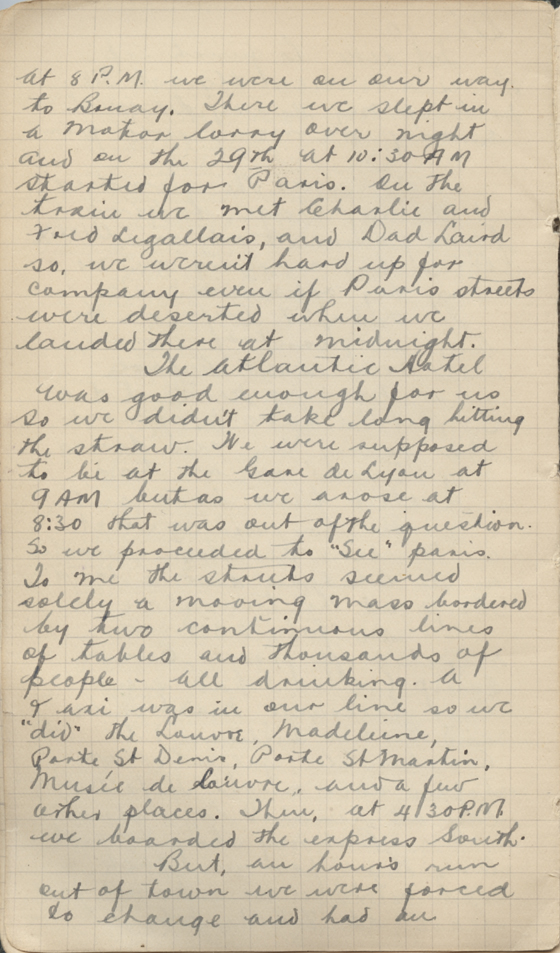 at 8 P.M. we were on our way.
to Bruay. There we slept in
a motor lorry over night
and on the 29th at 10:30 AM
started for Paris. On the
train we met Charlie and
Fred Legallais, and Dad Laird
so, we weren't hard up for
company even if Paris streets
were deserted when we
landed there at midnight.
The Atlantic Hotel
was good enough for us
so we didn't take long hitting
the straw. We were supposed
to be at the Gare de Lyon at
9 AM but as we arose at
8:30 that was out of the question.
So we proceeded to "See" paris.
To me the streets seemed
solely a moving mass bordered
by two continuous lines
of tables and thousands of
people - all drinking. A
Taxi was in our line so we
"did" the Louvre, Madeleine,
Porte St Denis, Porte St Martin,
Musée de Louvre, and a few
other places. Then, at 4:30 P.M.
we boarded the express South.
But, an hour's run
out of town we were forced
to change and had an